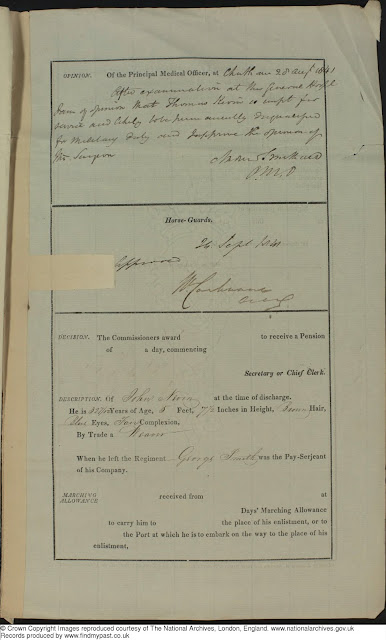 OPINION. Of the Principal Medical Officer, at Chatham 28 Augt 1841
After examination at the General Hospl
I am of opinion that Thomas is unfit for
service and likely to be permanently disqualified
for Military duty and I approve the opinion of
the Surgeon
P.M.O
Horse-Guards,
26 Sept 1841
Approved
DECISION. The Commissioners award to receive a Pension
of a day, commencing
Secretary or Chief Clerk.
DESCRIPTION. Of John at the time of discharge.
He is Years of Age, Feet, 7½ Inches in Height, Hair,
Blue Eyes, Complexion,
By Trade a Weaver
When he left the Regiment George Smith was the Pay-Serjeant
of his Company.
MARCHING ALLOWANCE received from at
Days' Marching Allowance
to carry him to the place of his enlistment, or to
the Port at which he is to embark on the way to the place of his
enlistment,
© Crown Copyright Images reproduced courtesy of The National Archives, London, England. www.nationalarchives.gov.uk
Records produced by www.findmypast.co.uk